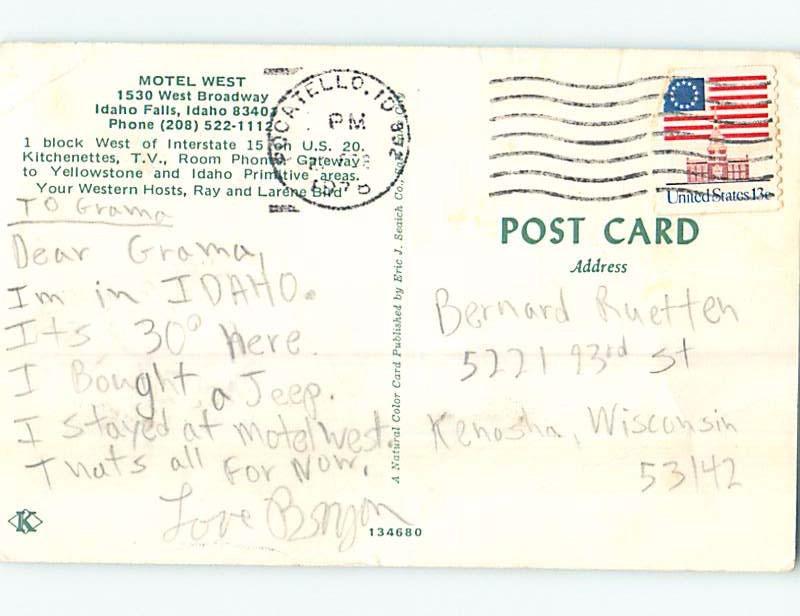 MOTEL WEST
1530 West Broadway
Idaho Falls, Idaho 8340
Phone (208) 522-1112
1 block West of Interstate 15 U.S. 20.
Kitchenettes, T.V., Room Phones Gateway
to Yellowstone and Idaho Primitive areas.
Your Western Hosts, Ray and Larene Bird
To Grama
Dear Grama,
Im in IDAHO.
Its 30° here.
I Bought a Jeep.
I stayed at motel west.
Thats all For Now.
Love
K
134680
A Natural Color Card Published by Eric J. Seaich Co.,
POCATELLO, ID 832
PM
United States 13c
POST CARD
Address
Bernard Ruetten
5221 93rd St
Kenosha, Wisconsin
53142